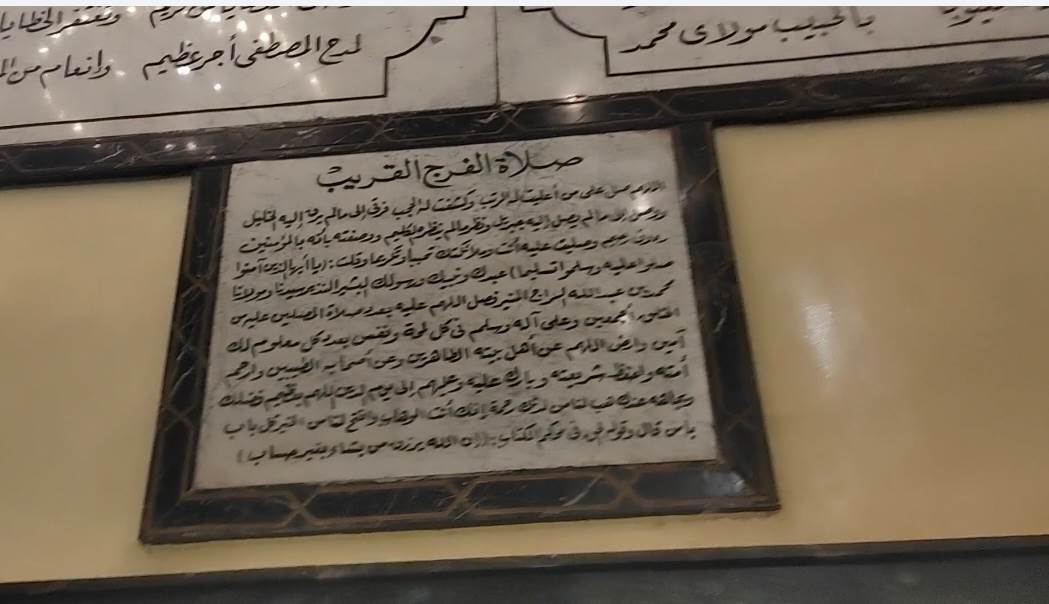 وتغتفر الخطايا
لمدح المصطفى أجر عظيم وإنعام من
بالحبيب مولاى محمد
صلاة الفرج القريب
اللهم صل على من أعليت له الرتب وكشفت له الحجب فرقى إلى مالم يرق إليه الخليل
ووصل إلى مالم يصل إليه جبريل ونظر مالم ينظره الكليم ووصفته بأنه بالمؤمنين
رءوف رحيم وصليت عليه أنت وملائكتك وقلت : (يا أيها الذين آمنوا
صلوا عليه وسلموا تسليما) عبدك ونبيك ورسولك البشير النذير سيدنا ومولانا
محمد بن عبد الله السراج المنير فصل اللهم عليه بعدد صلاة المصلين عليه من
أجمعين وعلى آله وسلم فى كل لمحة ونفس بعدد كل معلوم لك
آمين وارض اللهم عن أهل بيته الطاهرين وعن أصحابه الطيبين وارحم
أمته واحفظ شريعته وبارك عليه وعليهم إلى يوم الدين اللهم بعظيم فضلك
عندك هب لنا من لدنك رحمة إنك أنت الوهاب وافتح لنا من الخير كل باب
يا من قال وقوله فى محكم الكتاب : (إن الله يرزق من يشاء بغير حساب)